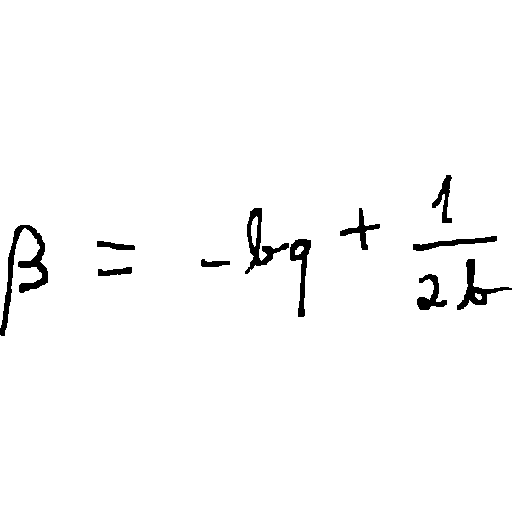 β = -bq + \frac{1}{2b}